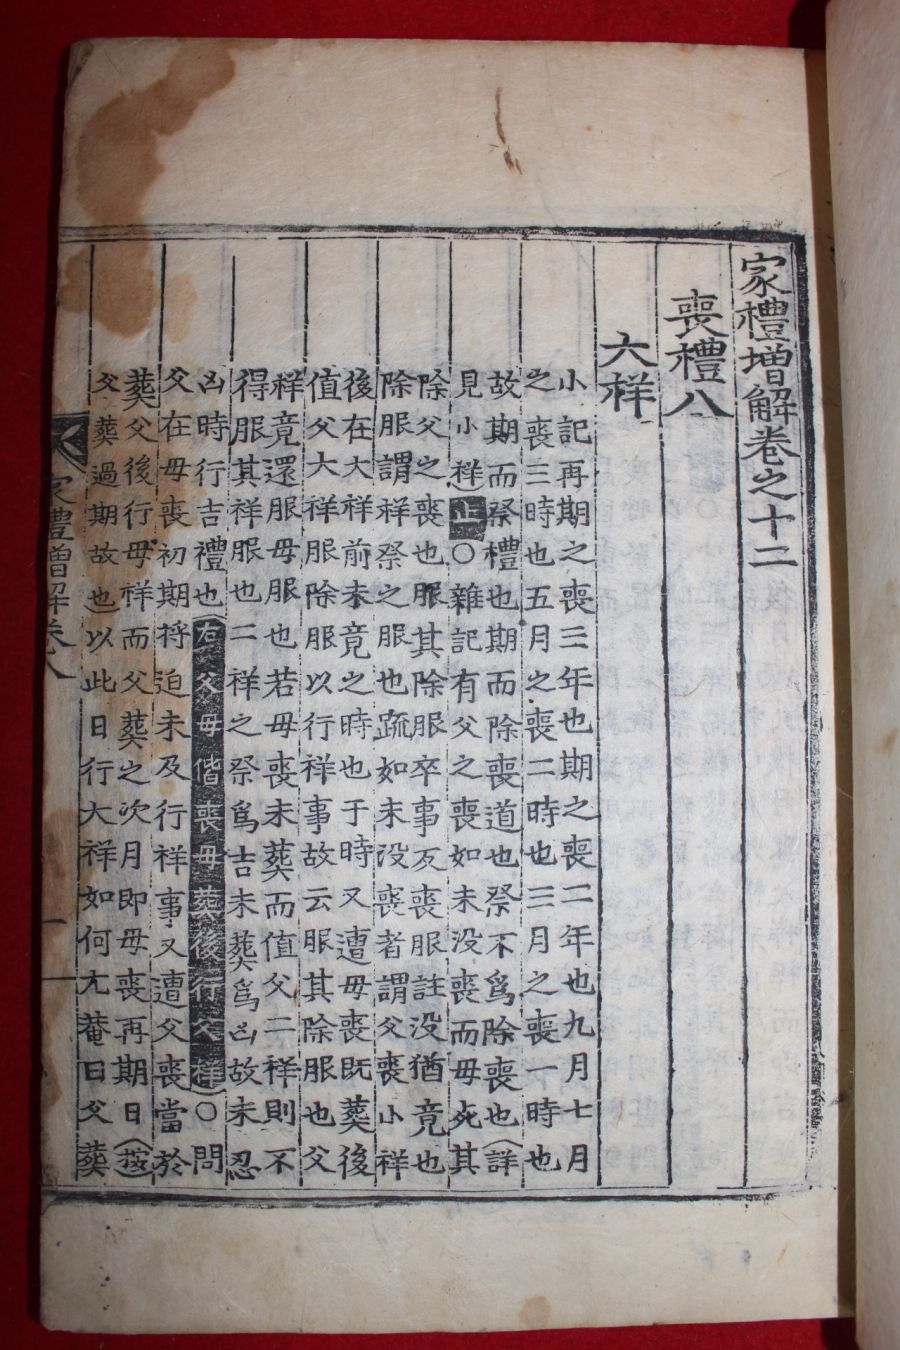 家禮增解卷之十二
喪禮八
大祥
小記再期之喪三年也期之喪二年也九月七月
之喪三時也五月之喪二時也三月之喪一時也
故期而祭禮也期而除喪道也祭不爲除喪也(詳
見小祥)正○雜記有父之喪如未没喪而母死其
除父之喪也服其除服卒事反喪服註没猶竟也
除服謂祥祭之服也疏如未没喪者謂父喪小祥
後在大祥前未竟之時也于時又遭母喪既葬後
值父大祥服除服以行祥事故云服其除服也父
祥竟還服母服也若母喪未葬而值父二祥則不
得服其祥服也二祥之祭爲吉未葬爲凶故未忍
凶時行吉禮也(右父母偕喪母葬後行父祥)○問
父在母喪初期將迫未及行祥事又遭父喪當於
葬父後行母祥而父葬之次月即母喪再期日(按
父葬過期故也)以此日行大祥如何尤菴曰父葬
家禮增解卷八
一